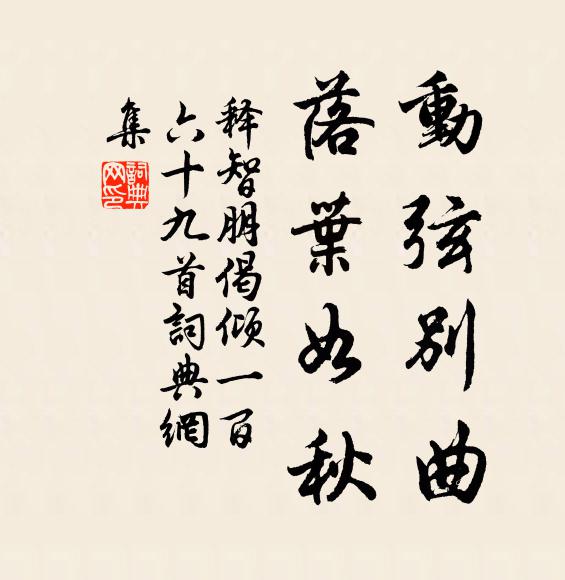 動弦别曲
落葉如秋
释智朋偈倾一百
六十九首詞典網
集
詞典
网印